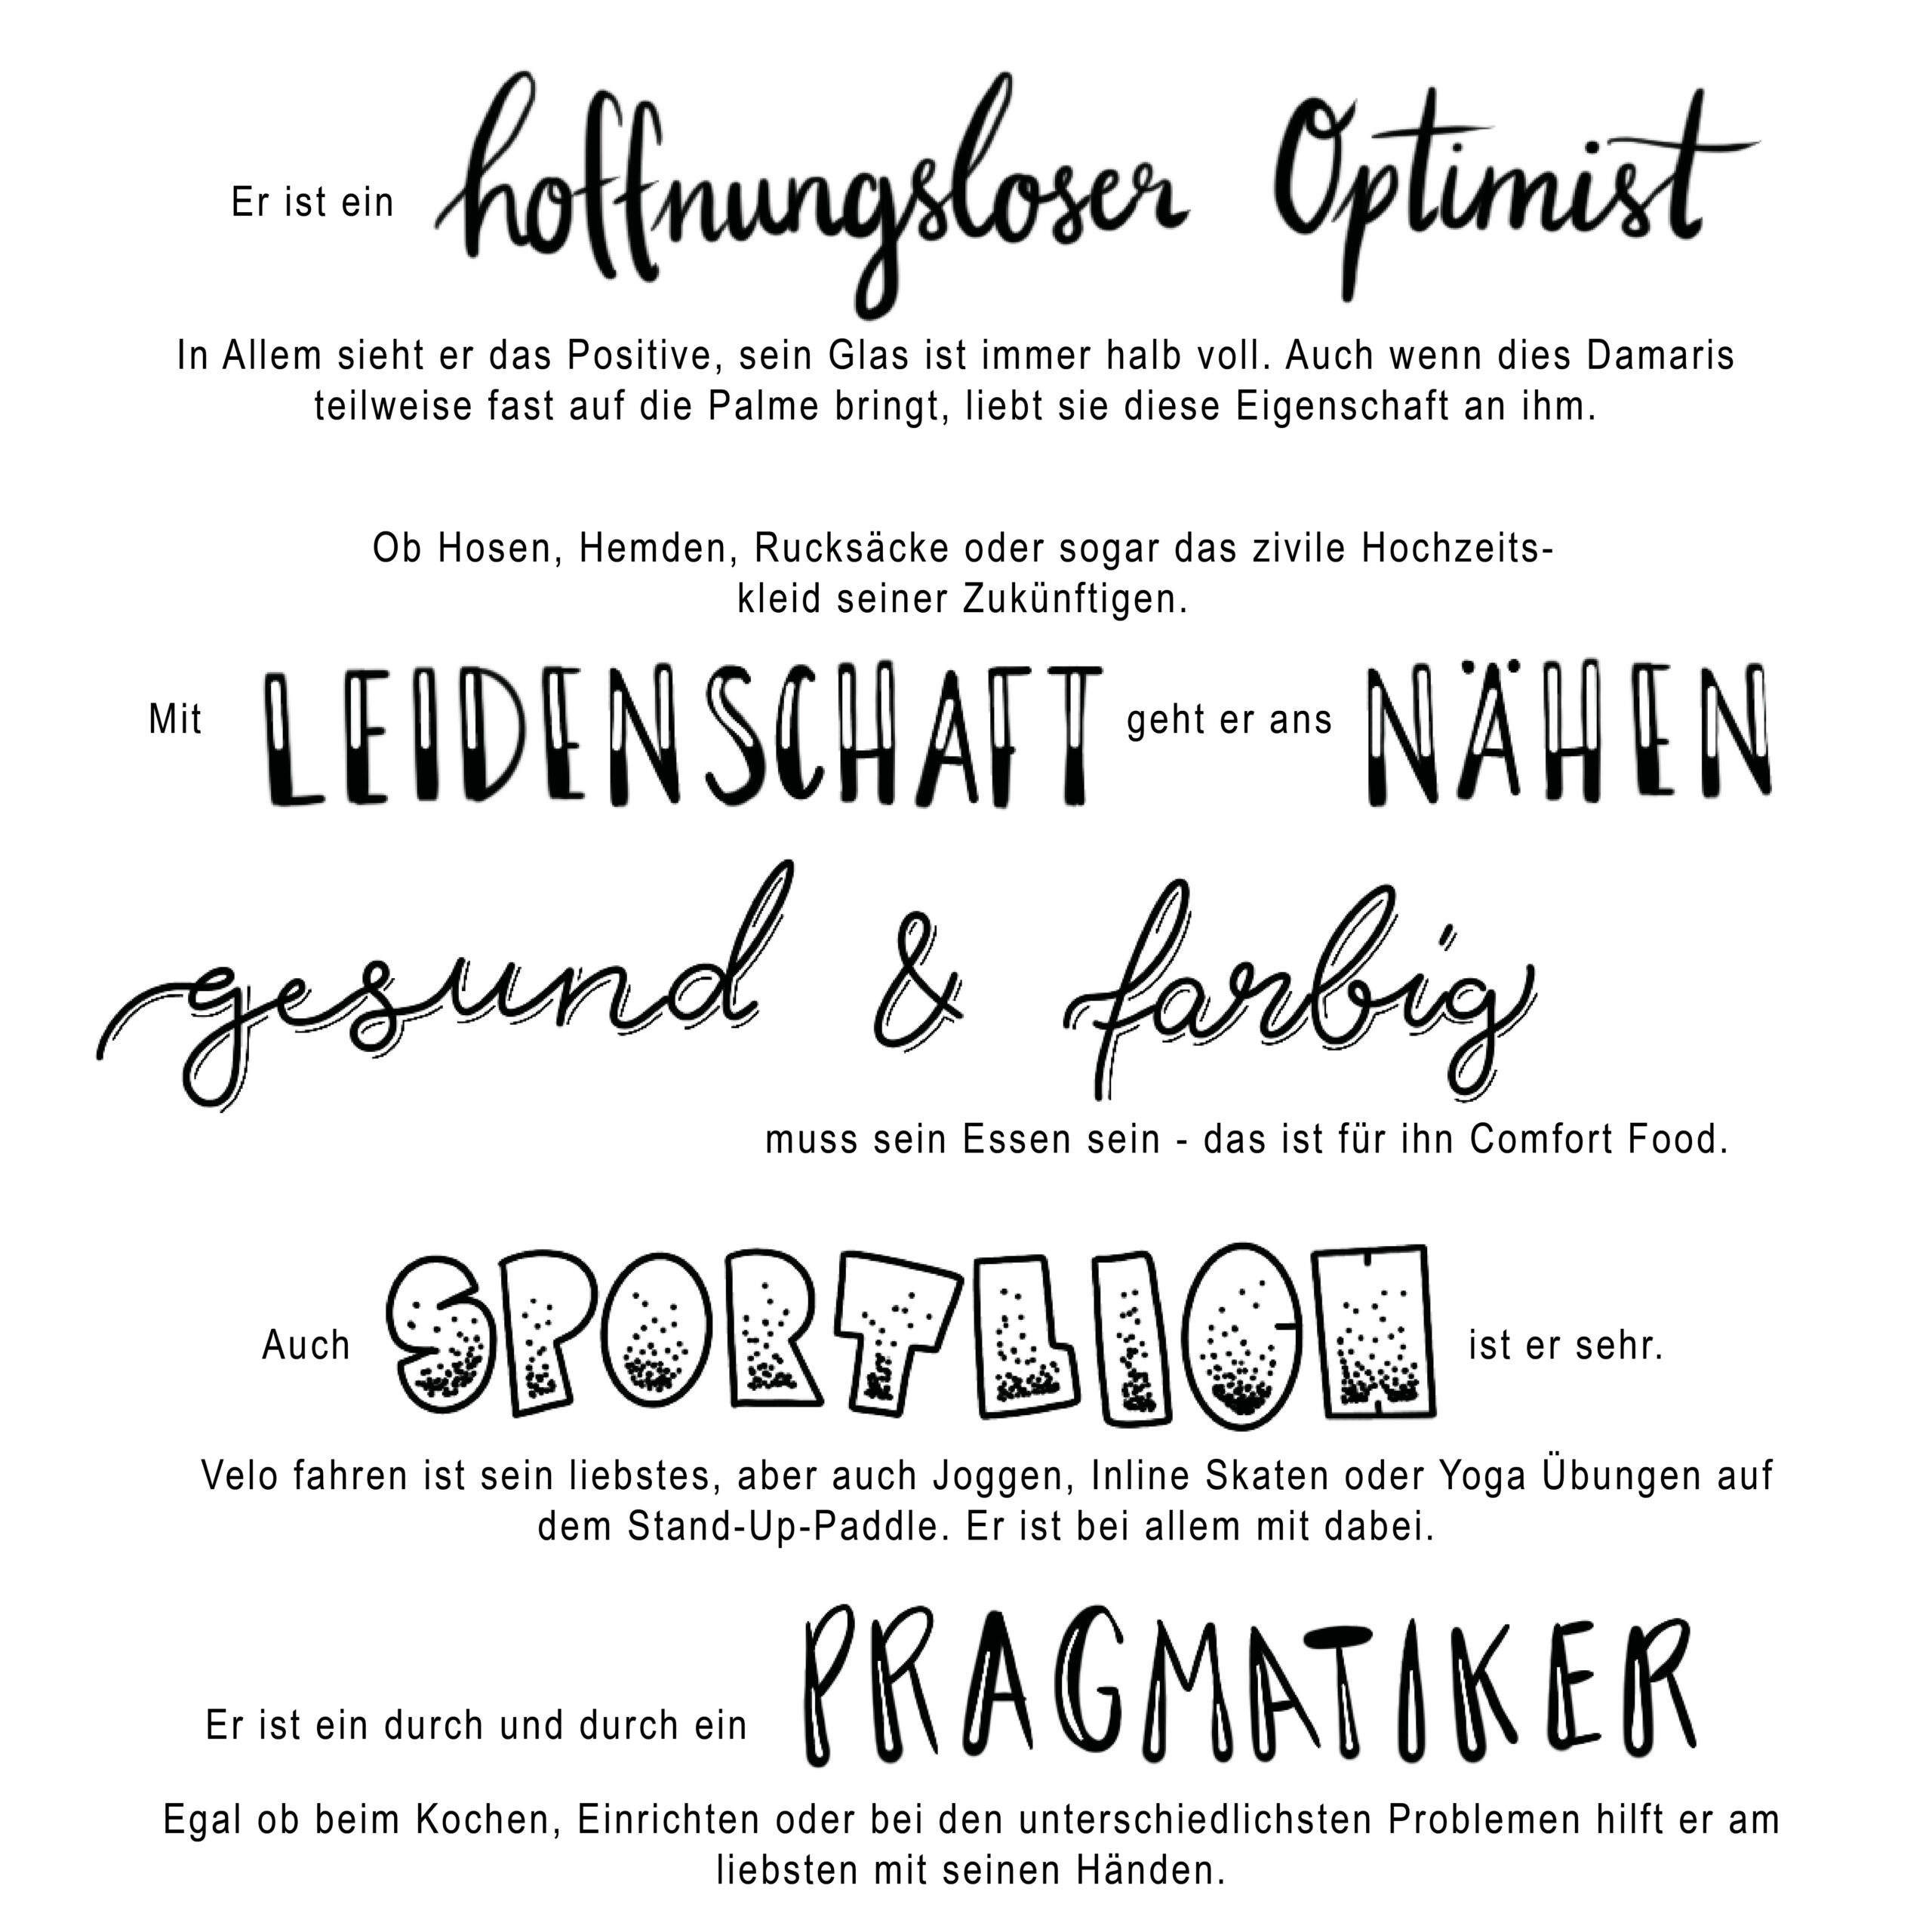 Er ist ein hoffnungsloser Optimist
In Allem sieht er das Positive, sein Glas ist immer halb voll. Auch wenn dies Damaris
teilweise fast auf die Palme bringt, liebt sie diese Eigenschaft an ihm.
Ob Hosen, Hemden, Rucksäcke oder sogar das zivile Hochzeits-
kleid seiner Zukünftigen.
Mit LEIDENSCHAFT geht er ans NÄHEN
gesund & farbig
muss sein Essen sein - das ist für ihn Comfort Food.
Auch SPORTLICH ist er sehr.
Velo fahren ist sein liebstes, aber auch Joggen, Inline Skaten oder Yoga Übungen auf
dem Stand-Up-Paddle. Er ist bei allem mit dabei.
Er ist ein durch und durch ein PRAGMATIKER
Egal ob beim Kochen, Einrichten oder bei den unterschiedlichsten Problemen hilft er am
liebsten mit seinen Händen.